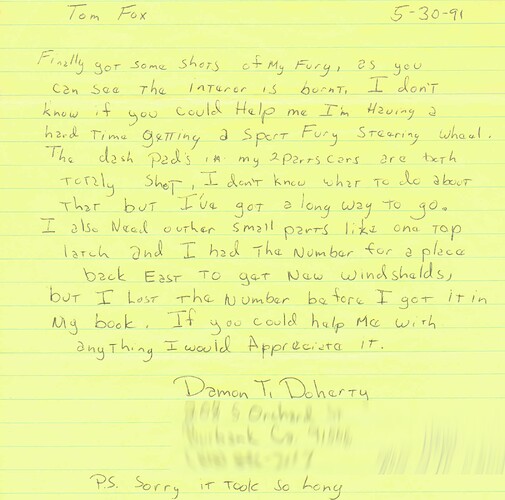 Tom Fox 5-30-91
Finally got some shots of My Fury, as you
can see the Interor is burnt, I don't
know if you could Help me I'm Having a
hard Time getting a Sport Fury Steering wheel.
The dash Pad's in my 2 parts cars are both
totaly shot, I don't know what to do about
That but I've got a long way to go.
I also Need outher small parts like one top
latch and I had The Number for a place
back East To get New windshelds,
but I Lost The Number before I got it in
My book. If you could help Me with
anything I would Appreciate it.
Damon T. Doherty
P.S. Sorry it Took So Long